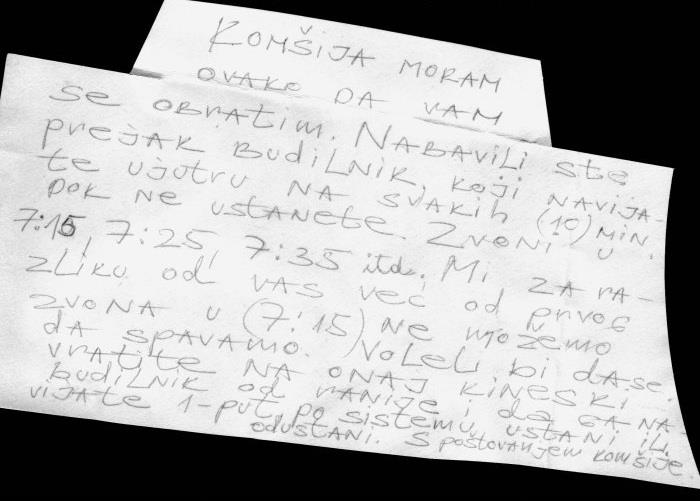 KOMŠIJA MORAM
OVAKO DA VAM
se OBRATIM. NABAVILI STE
PREJAK BUDILNIK, koji NAVIJA-
te ujutru NA SVAKIH (10) MIN.
DOK NE USTANETE. ZVONI U
7:15, 7:25, 7:35 itd. Mi ZA RA-
ZLIKU od VAS već od PRVOG
ZVONA u (7:15) NE MOŽEMO
da SPAVAMO. VOLELI bi da se
VRATITE NA ONAJ KINESKI
BUDILNIK od RANIJE i da GA NA-
VIJATE 1-put, po sistemu ustani ili
odustani. S poštovanjem komšije